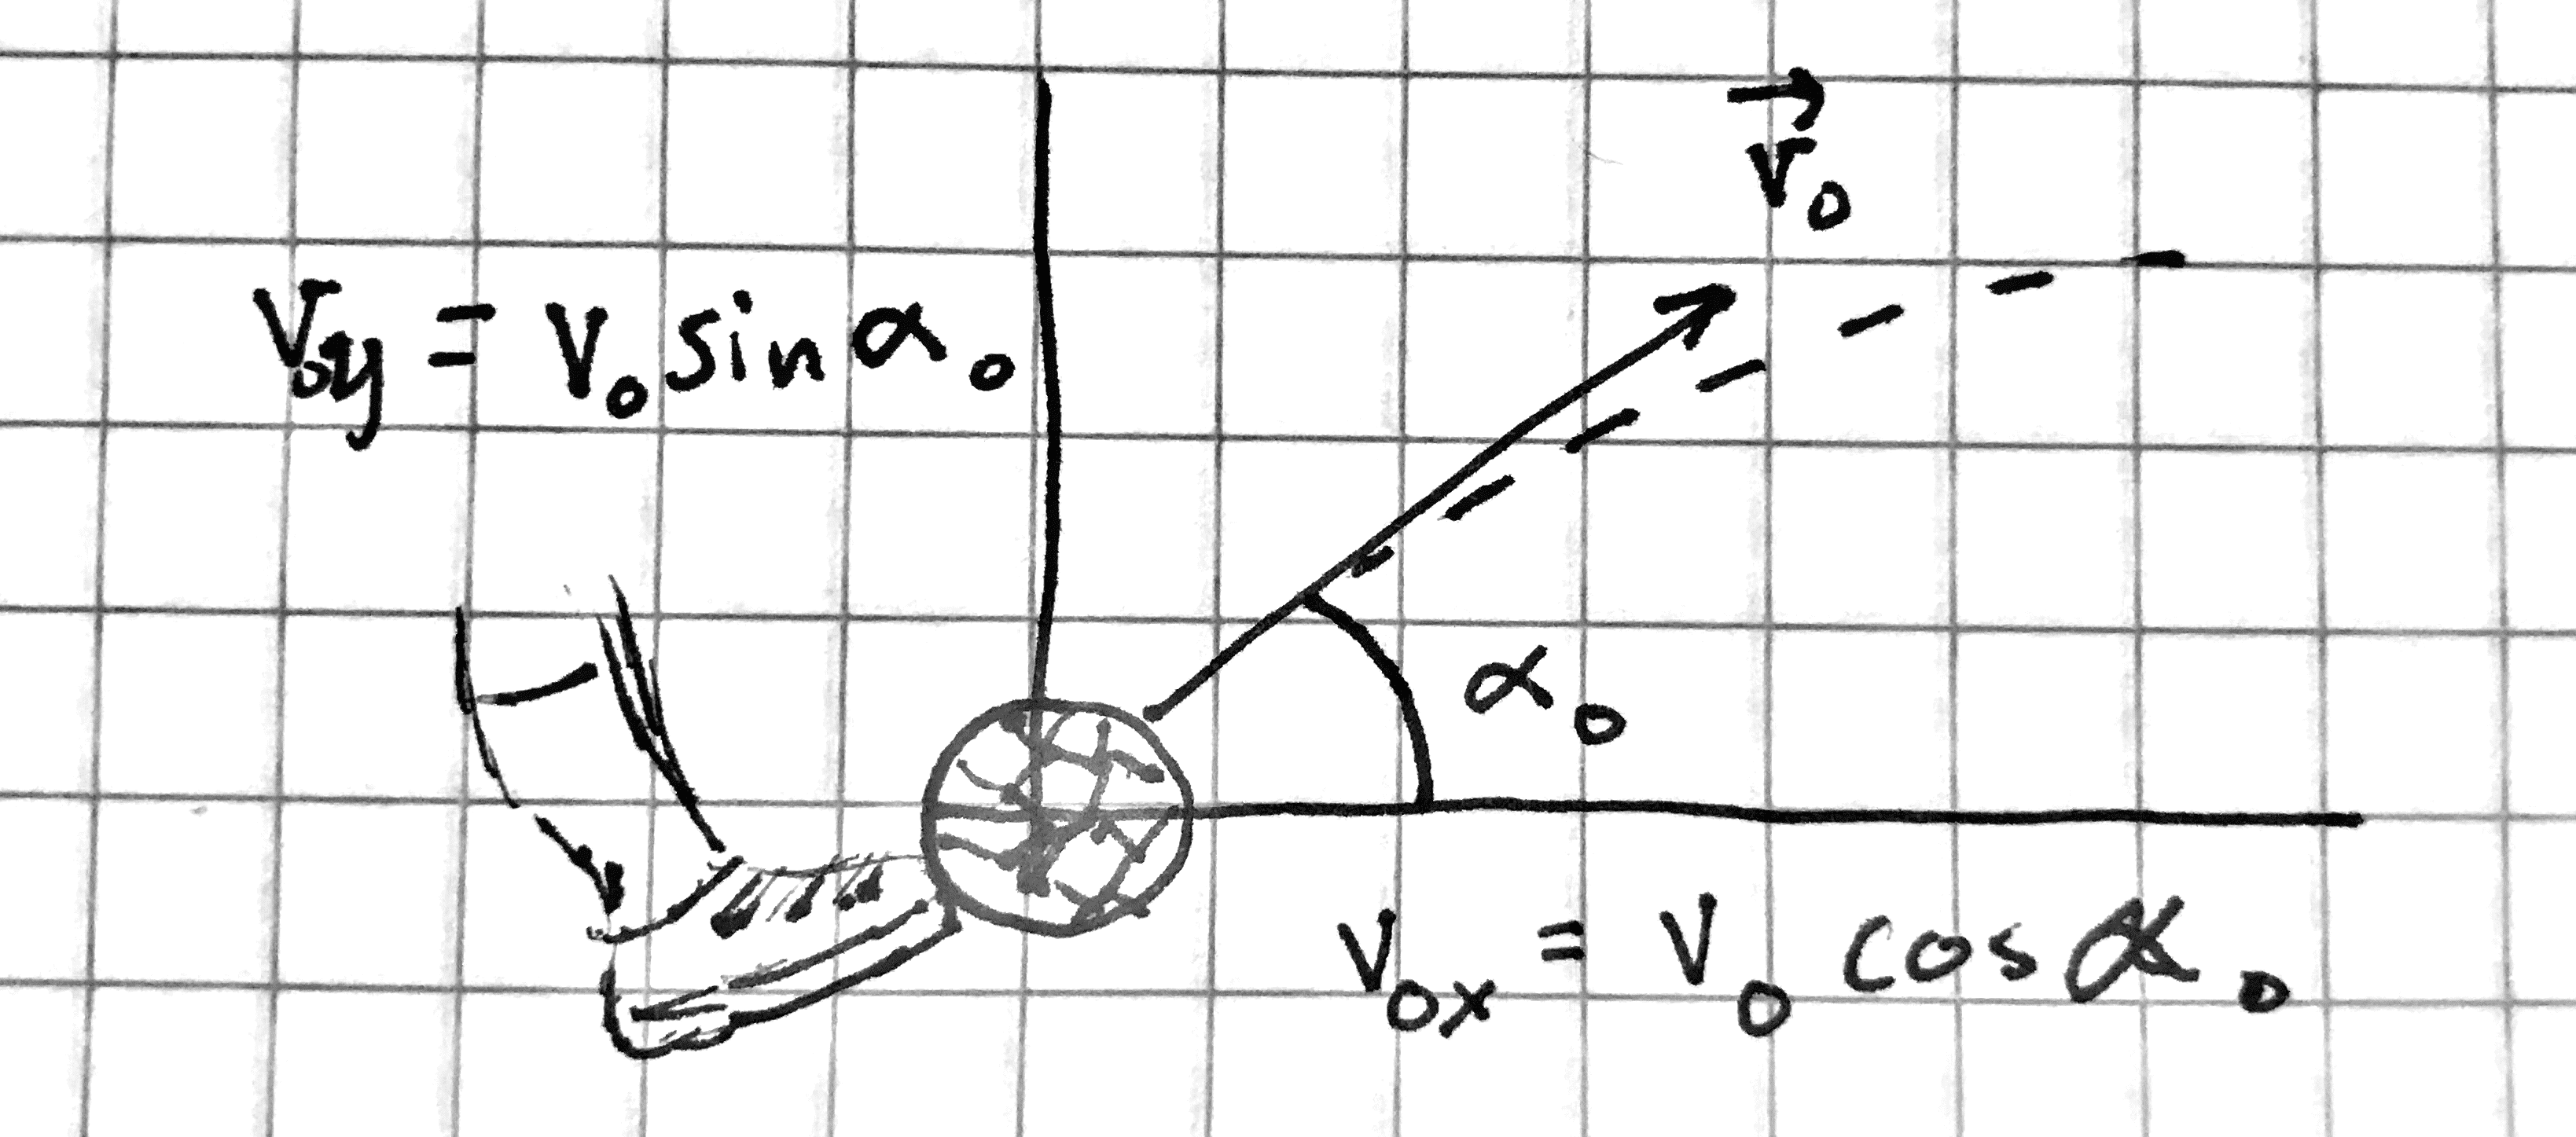 v⃗₀
v₀y = v₀ sin α₀
α₀
v₀x = v₀ cos α₀